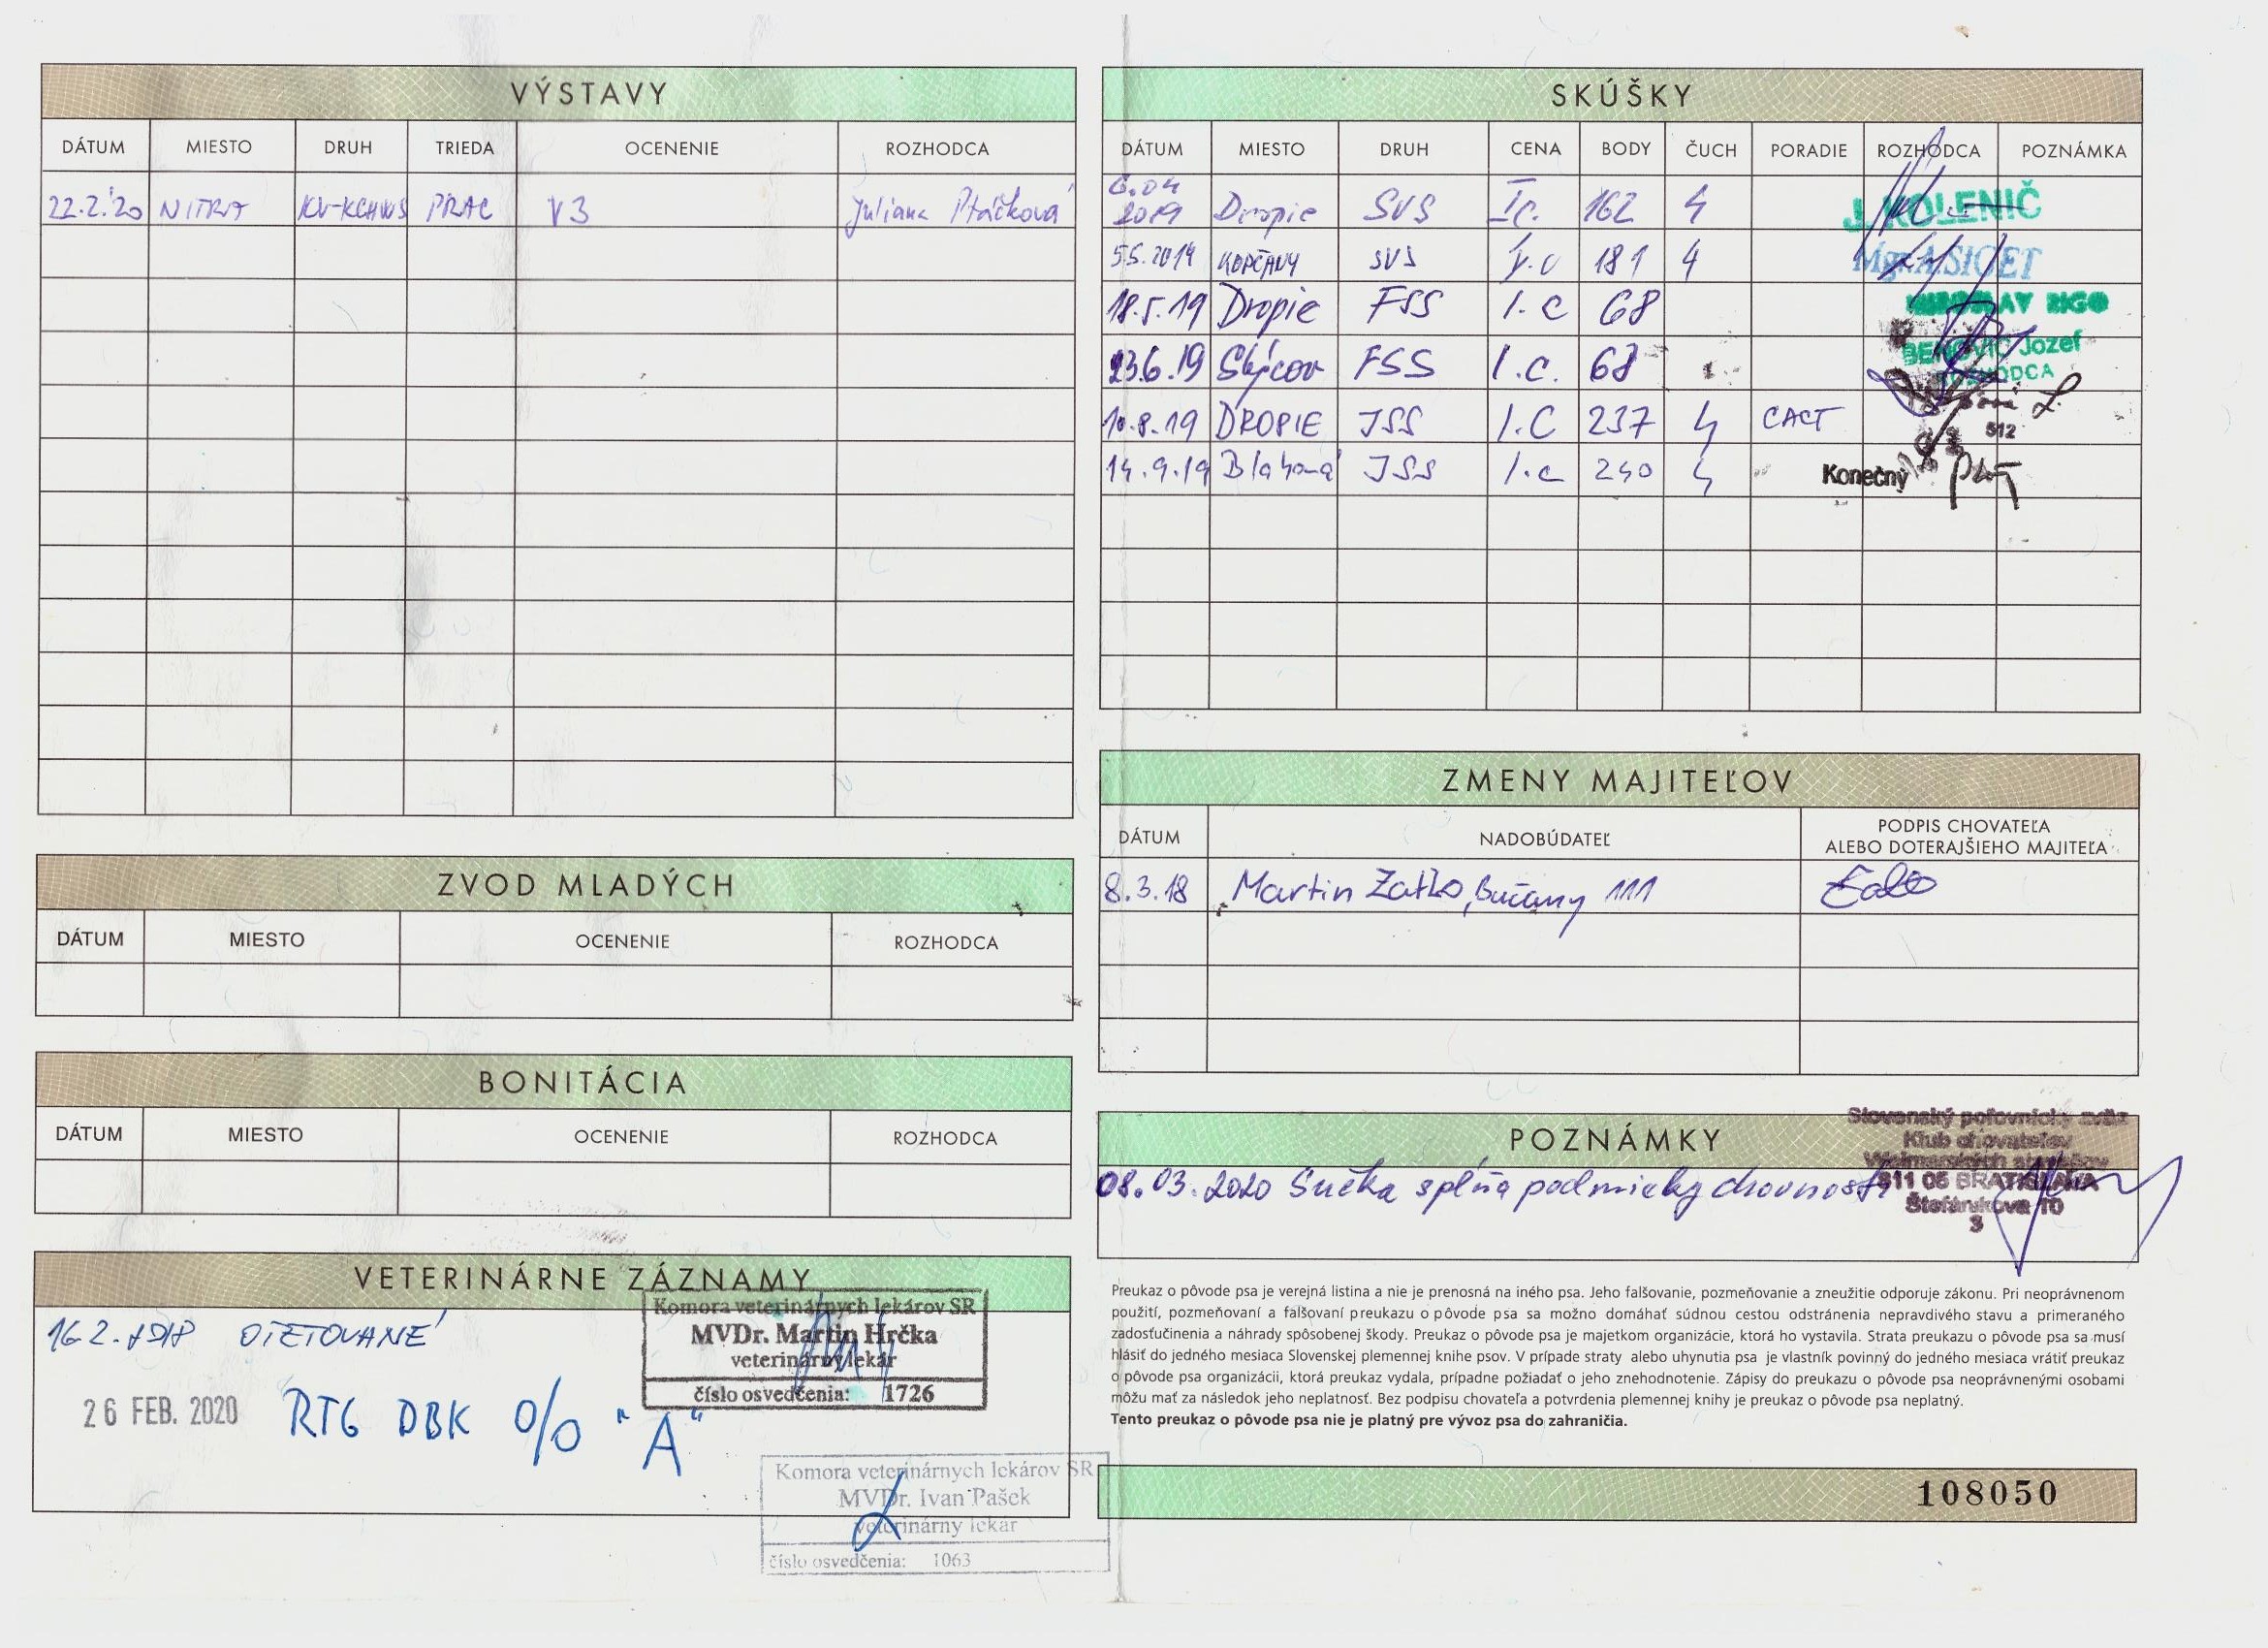 VÝSTAVY
DÁTUM MIESTO DRUH TRIEDA OCENENIE ROZHODCA
22.2.'20 NITRA KV-KCHWS PRAC V3 Juliana Ptáčková
ZVOD MLADÝCH
DÁTUM MIESTO OCENENIE ROZHODCA
BONITÁCIA
DÁTUM MIESTO OCENENIE ROZHODCA
VETERINÁRNE ZÁZNAMY
16.2.2018 OTETOVANÉ
Komora veterinárnych lekárov SR
MVDr. Martin Hrčka
veterinárny lekár
číslo osvedčenia: 1726
26 FEB. 2020 RTG DBK 0/0 "A"
Komora veterinárnych lekárov SR
MVDr. Ivan Pašek
veterinárny lekár
číslo osvedčenia: 1063
SKÚŠKY
DÁTUM MIESTO DRUH CENA BODY ČUCH PORADIE ROZHODCA POZNÁMKA
6.04 2019 Dropie SVS I c. 162 4 J. KOLENIČ
5.5.2019 KOPČANY SVS I.c 181 4 Mgr. A. SIGET
18.5.19 Dropie FSS I.c 68 RIGO
23.6.19 Slýcov FSS I.c. 68 BEŇOVIČ Jozef
ROZHODCA
10.8.19 DROPIE JSS I.C 237 4 CACT
512
14.9.19 Blahová JSS I.c 240 4 Konečný
ZMENY MAJITEĽOV
DÁTUM NADOBÚDATEĽ PODPIS CHOVATEĽA
ALEBO DOTERAJŠIEHO MAJITEĽA
8.3.18 Martin Zaťko, Bučany 111
POZNÁMKY
Slovenský poľovnícky zväz
Klub chovateľov
Weimarských stavačov
811 05 BRATISLAVA
Štefánikova 10
3
08.03.2020 Sučka splňa podmienky chovnosti
Preukaz o pôvode psa je verejná listina a nie je prenosná na iného psa. Jeho falšovanie, pozmeňovanie a zneužitie odporuje zákonu. Pri neoprávnenom
použití, pozmeňovaní a falšovaní preukazu o pôvode psa sa možno domáhať súdnou cestou odstránenia nepravdivého stavu a primeraného
zadosťučinenia a náhrady spôsobenej škody. Preukaz o pôvode psa je majetkom organizácie, ktorá ho vystavila. Strata preukazu o pôvode psa sa musí
hlásiť do jedného mesiaca Slovenskej plemennej knihe psov. V prípade straty alebo uhynutia psa je vlastník povinný do jedného mesiaca vrátiť preukaz
o pôvode psa organizácii, ktorá preukaz vydala, prípadne požiadať o jeho znehodnotenie. Zápisy do preukazu o pôvode psa neoprávnenými osobami
môžu mať za následok jeho neplatnosť. Bez podpisu chovateľa a potvrdenia plemennej knihy je preukaz o pôvode psa neplatný.
Tento preukaz o pôvode psa nie je platný pre vývoz psa do zahraničia.
108050